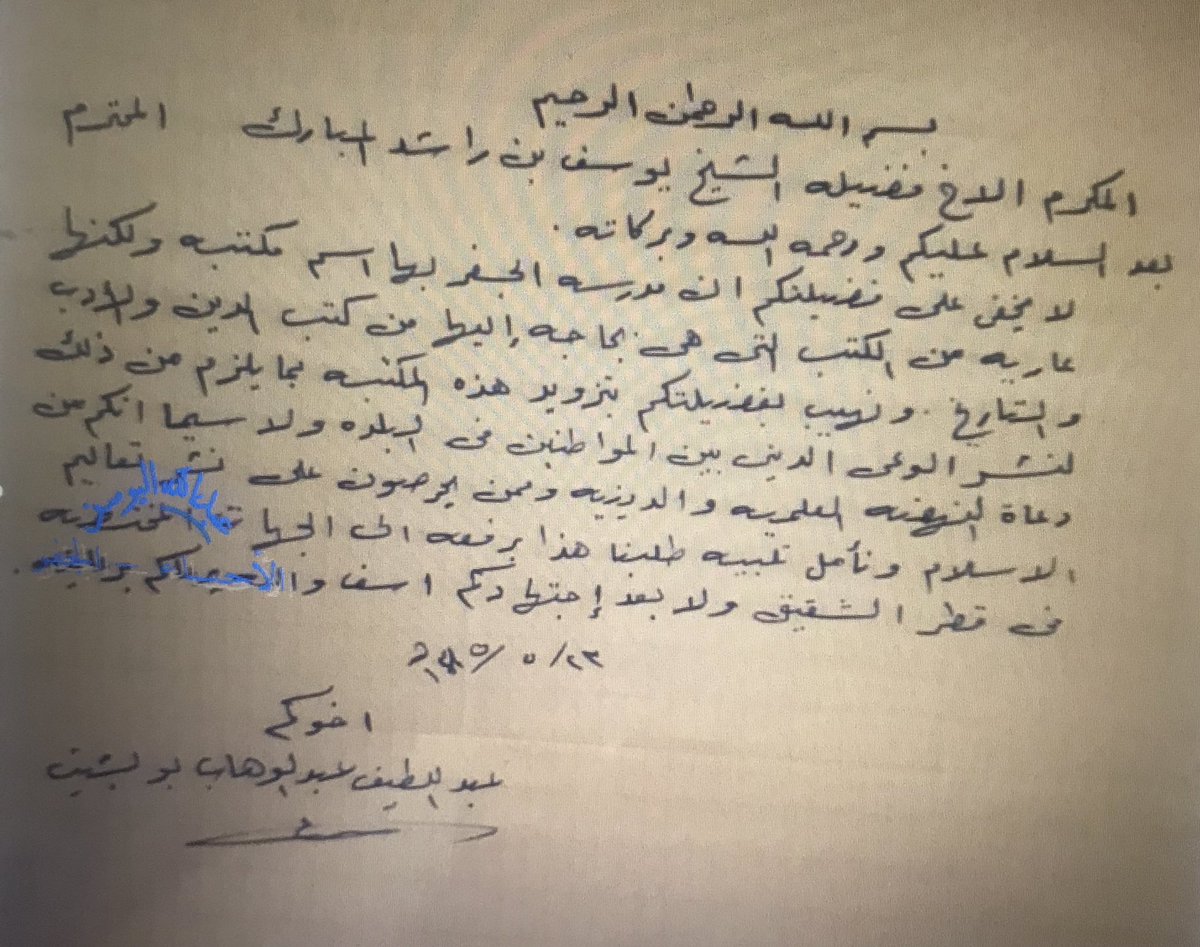 بسم الله الرحمن الرحيم
المكرم الاخ فضيله الشيخ يوسف بن راشد المبارك المحترم
بعد السلام عليكم ورحمه الله وبركاته .
لا يخفى على فضيلتكم ان مدرسه الجفر بها اسم مكتبه ولكنها
عاريه من الكتب التى هى بحاجه إليها من كتب الدين والادب
والتاريخ . ونهيب بفضيلتكم بتزويد هذه المكتبه بما يلزم من ذلك
لنشر الوعى الدينى بين المواطنين فى البلده ولا سيما انكم من
دعاة النهضه العلميه والدينيه وممن يحرصون على نشر تعاليم
الاسلام ونأمل تلبيه طلبنا هذا برفعه الى الجهات
فى قطر الشقيق ولا بعد إجتهادكم اسف
اخوكم
عبد اللطيف عبد الوهاب بو بشيت